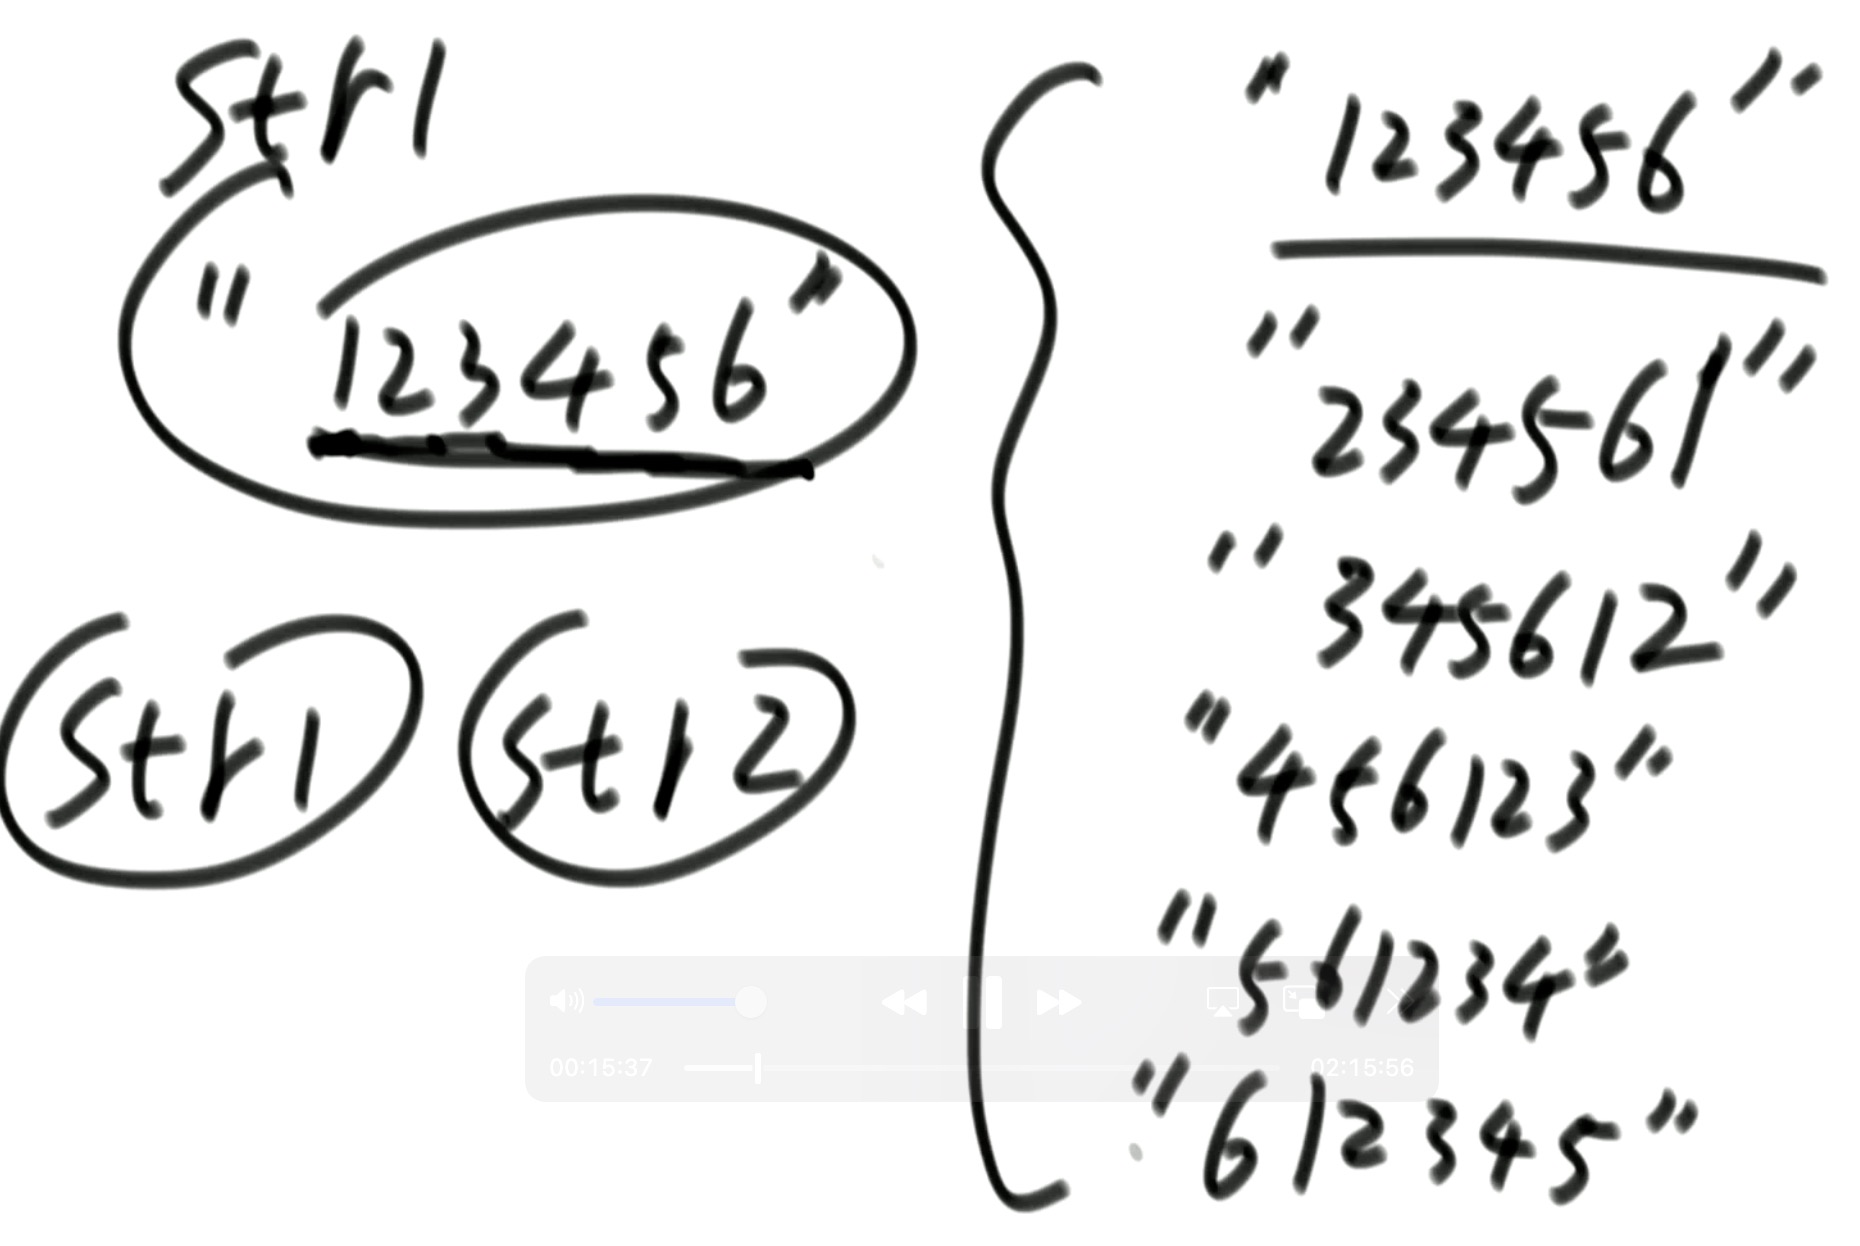 str1
"123456"
str1 str2
"123456"
"234561"
"345612"
"456123"
"561234"
"612345"
00:15:37 02:15:56